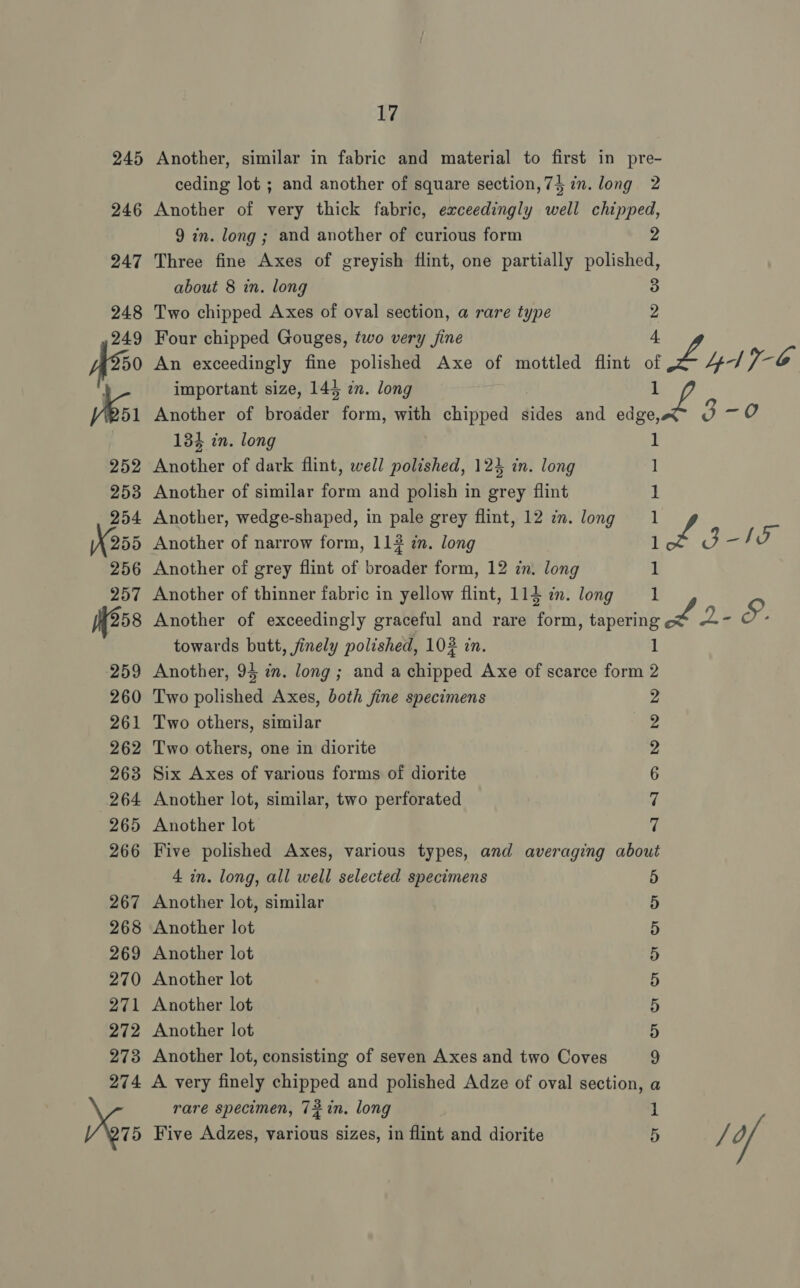 17
245 Another, similar in fabric and material to first in pre-
ceding lot ; and another of square section, 7½ in. long 2
246 Another of very thick fabric, exceedingly well chipped,
9 in. long ; and another of curious form 2
247 Three fine Axes of greyish flint, one partially polished,
about 8 in. long 3
248 Two chipped Axes of oval section, a rare type 2
249 Four chipped Gouges, two very fine 4
250 An exceedingly fine polished Axe of mottled flint of £4-17-6
important size, 14½ in. long 1
251 Another of broader form, with chipped sides and edge, £3-0
13½ in. long 1
252 Another of dark flint, well polished, 12½ in. long 1
253 Another of similar form and polish in grey flint 1
254 Another, wedge-shaped, in pale grey flint, 12 in. long 1
255 Another of narrow form, 11¾ in. long 1 £3-15
256 Another of grey flint of broader form, 12 in. long 1
257 Another of thinner fabric in yellow flint, 11½ in. long 1
258 Another of exceedingly graceful and rare form, tapering £2-8-
towards butt, finely polished, 10¾ in. 1
259 Another, 9½ in. long ; and a chipped Axe of scarce form 2
260 Two polished Axes, both fine specimens 2
261 Two others, similar 2
262 Two others, one in diorite 2
263 Six Axes of various forms of diorite 6
264 Another lot, similar, two perforated 7
265 Another lot 7
266 Five polished Axes, various types, and averaging about
4 in. long, all well selected specimens 5
267 Another lot, similar 5
268 Another lot 5
269 Another lot 5
270 Another lot 5
271 Another lot 5
272 Another lot 5
273 Another lot, consisting of seven Axes and two Coves 9
274 A very finely chipped and polished Adze of oval section, a
rare specimen, 7¾ in. long 1
275 Five Adzes, various sizes, in flint and diorite 5 10/